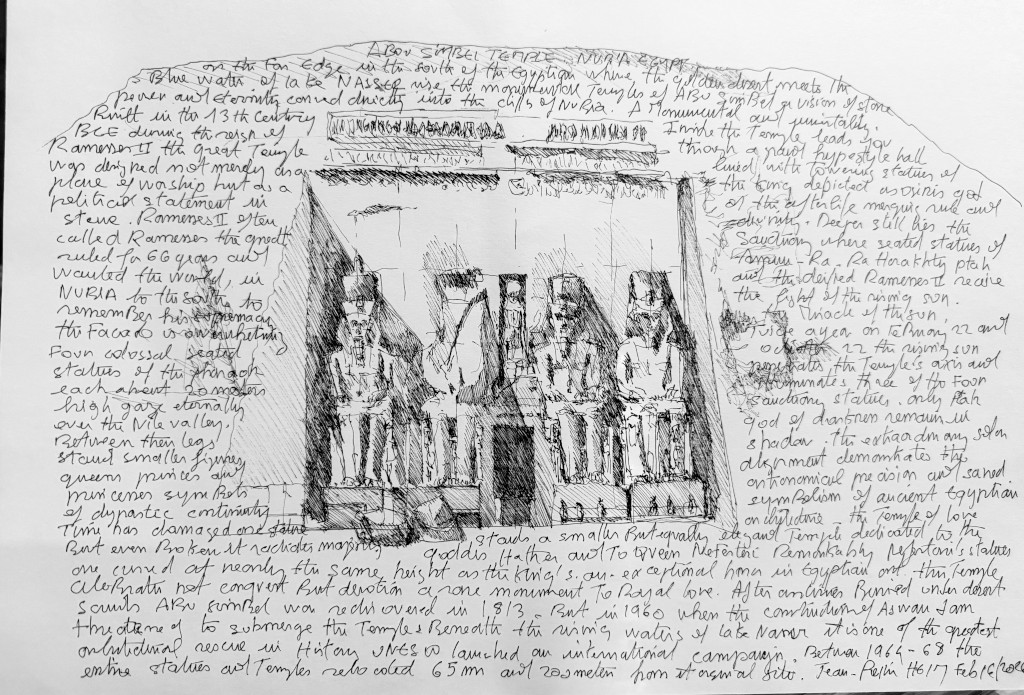 ABOU SIMBEL TEMPLE NUBIA EGYPT
on the Far Edge in the south of the Egyptian where the golden desert meets the
Blue water of lake NASSER rise the monumental Temples of ABU Simbel a vision of stone
power and eternity carved directly into the cliffs of NUBIA. A Monumental and
Built in the 13th century
BCE during the reign of
Ramesses II the great Temple
was designed not merely as a
place of worship but as a
political statement in
stone. Ramesses II often
called Ramesses the great
ruled for 66 years and
wanted the world, in
NUBIA to the south to
remember his supremacy
the Facade is overwhelming
Four colossal seated
statues of the pharaoh
each about 20 meters
high gaze eternally
over the Nile valley.
Between their legs
stand smaller figures
queens princes and
princesses symbols
of dynastic continuity
Time has damaged one statue
But even Broken it radiates majesty
Inside the Temple leads you
through a grand hypostyle hall
lined with towering statues of
the king depicted as osiris god
of the afterlife merging rule and
divinity. Deeper still lies the
Sanctuary where seated statues of
Ra. Ra Horakhty ptah
and the deified Ramesses II receive
the light of the rising sun.
the Miracle of the sun,
Twice a year on February 22 and
october 22 the rising sun
penetrates the Temple's axis and
illuminates three of the Four
Sanctuary statues. only Ptah
god of darkness remain in
shadow. the extraordinary solar
alignment demonstrates the
astronomical precision and sacred
symbolism of ancient Egyptian
architecture - the Temple of love
stands a smaller But equally elegant Temple dedicated to the
goddess Hathor and To Queen Nefertari Remarkably Nefertari's statues
are carved at nearly the same height as the king's. an exceptional honor in Egyptian art this Temple
celebrates not conquest But devotion a rare monument To Royal love. After centuries Buried under desert
sands ABU Simbel was rediscovered in 1813 - But in 1960 when the construction of Aswan dam
threatened to submerge the Temples Beneath the rising waters of lake Nasser it is one of the greatest
architectural rescue in History UNESCO launched an international campaign. Between 1964-68 the
entire statues and Temples relocated 65 m and 200 meters from it original site. Jean-Feb 16/2026